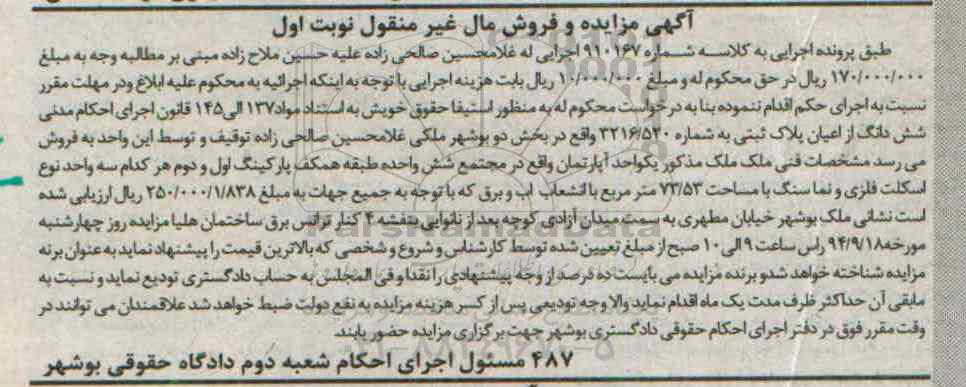 آگهی مزایده و فروش مال غیر منقول نوبت اول
طبق پرونده اجرایی به کلاسه شماره ۹۱۰۱۶۷ اجرایی له غلامحسین صالحی زاده علیه حسین ملاح زاده مبنی بر مطالبه وجه به مبلغ
۱۷۰/۰۰۰/۰۰۰ ریال در حق محکوم له و مبلغ ۱۰/۰۰۰/۰۰۰ ریال بابت هزینه اجرایی با توجه به اینکه اجرائیه به محکوم علیه ابلاغ ودر مهلت مقرر
نسبت به اجرای حکم اقدام ننموده بنا به درخواست محکوم له به منظور استیفا حقوق خویش به استناد مواد۱۳۷ الی۱۴۵ قانون اجرای احکام مدنی
شش دانگ از اعیان پلاک ثبتی به شماره ۳۲۱۶/۵۲۰ واقع در بخش دو بوشهر ملکی غلامحسین صالحی زاده توقیف و توسط این واحد به فروش
می رسد مشخصات فنی ملک ملک مذکور یکواحد آپارتمان واقع در مجتمع شش واحده طبقه همکف پارکینگ اول و دوم هر کدام سه واحد نوع
اسکلت فلزی و نما سنگ با مساحت ۷۳/۵۳ متر مربع با انشعاب اب و برق که با توجه به جمیع جهات به مبلغ ۲۵۰/۰۰۰/۱/۸۳۸ ریال ارزیابی شده
است نشانی ملک بوشهر خیابان مطهری به سمت میدان آزادی کوچه بعد از نانوایی بنفشه ۴ کنار ترانس برق ساختمان هلیا مزایده روز چهارشنبه
مورخه۹۴/۹/۱۸ راس ساعت ۹ الی ۱۰ صبح از مبلغ تعیین شده توسط کارشناس و شروع و شخصی که بالاترین قیمت را پیشنهاد نماید به عنوان برنه
مزایده شناخته خواهد شدو برنده مزایده می بایست ده درصد از وجه پیشنهادی را نقدا و فی المجلس به حساب دادگستری تودیع نماید و نسبت به
مابقی آن حداکثر ظرف مدت یک ماه اقدام نماید والا وجه تودیعی پس از کسر هزینه مزایده به نفع دولت ضبط خواهد شد علاقمندان می توانند در
وقت مقرر فوق در دفتر اجرای احکام حقوقی دادگستری بوشهر جهت برگزاری مزایده حضور یابند
۴۸۷ مسئول اجرای احکام شعبه دوم دادگاه حقوقی بوشهر